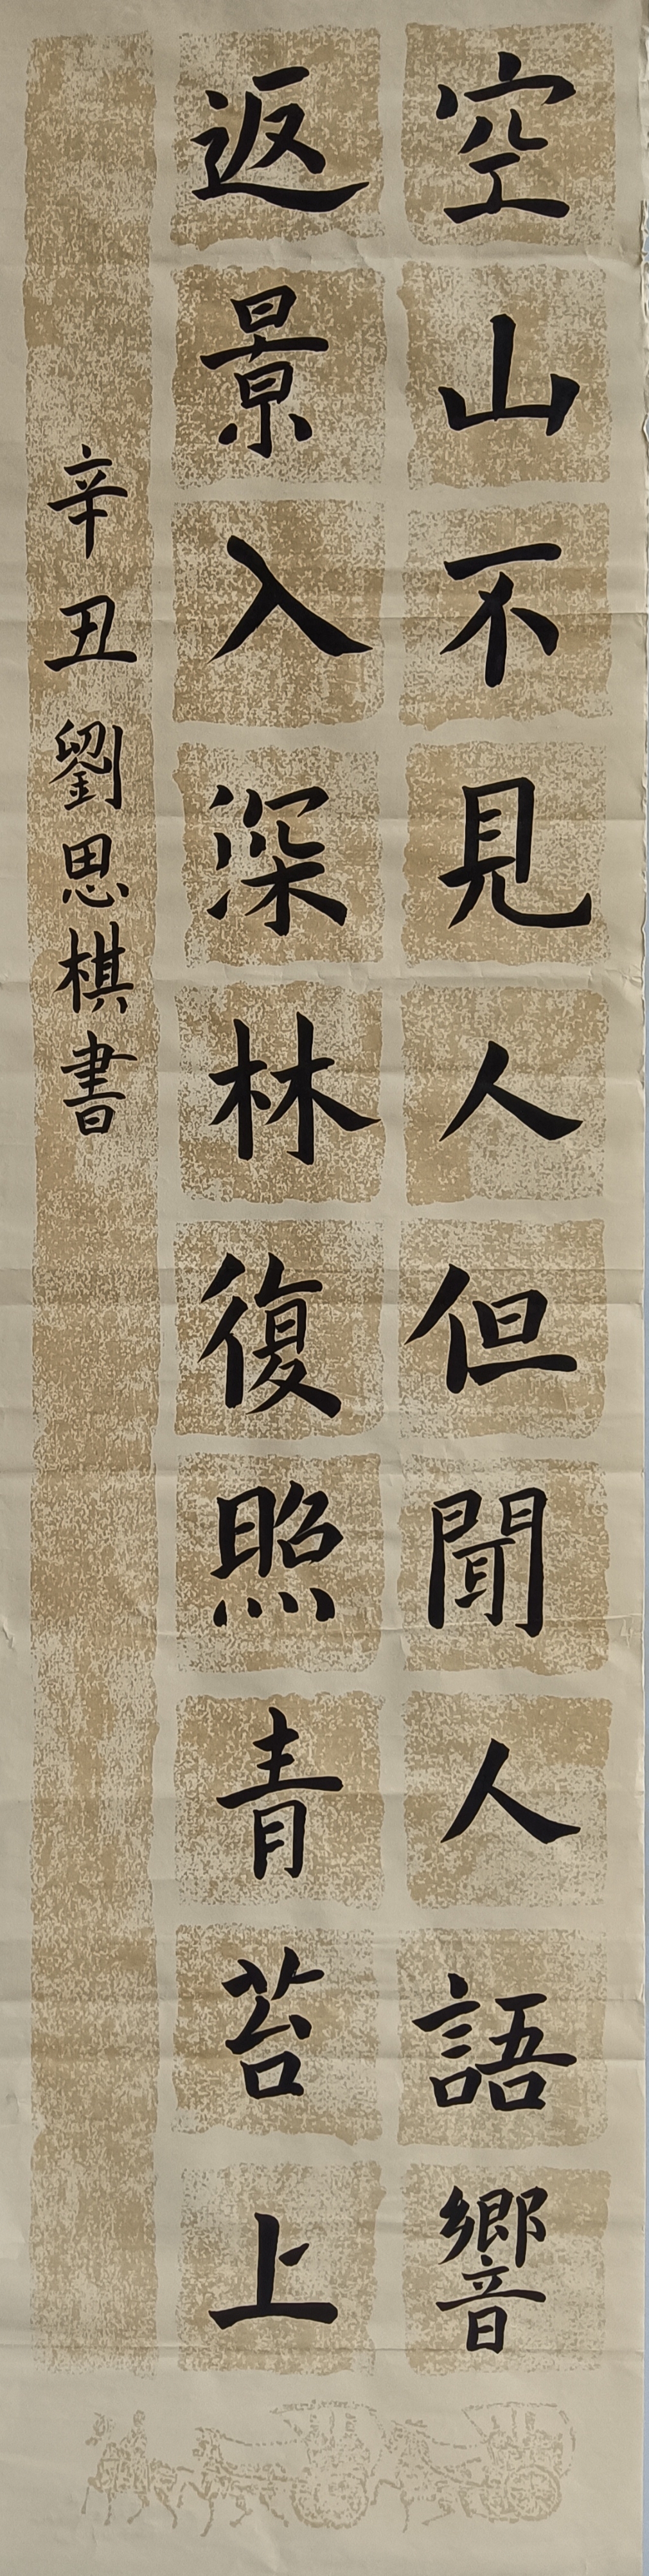 空山不見人但聞人語響
返景入深林復照青苔上
辛丑劉思棋書